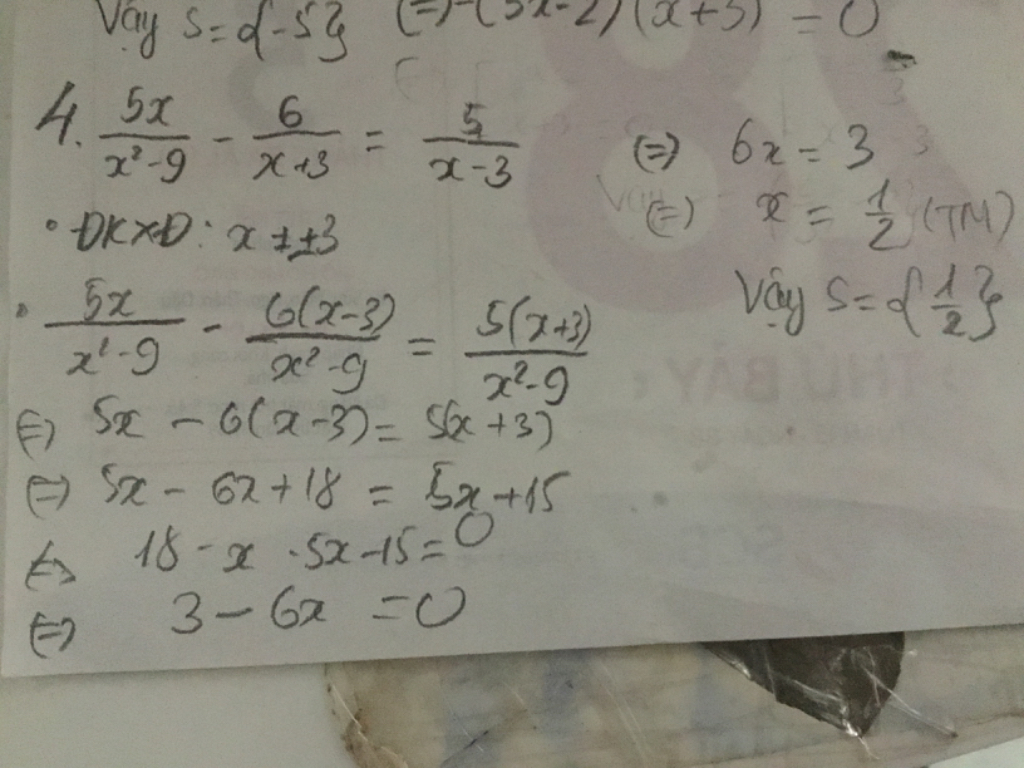 Vậy S = {-5}
(=) -(5x-2)(x+5) = 0
4. 5x/(x²-9) - 6/(x+3) = 5/(x-3)
• ĐKXĐ: x ≠ ±3
• 5x/(x²-9) - 6(x-3)/(x²-9) = 5(x+3)/(x²-9)
(=) 5x - 6(x-3) = 5(x+3)
(=) 5x - 6x + 18 = 5x + 15
(=) 18 - x - 5x - 15 = 0
(=) 3 - 6x = 0
(=) 6x = 3
(=) x = 1/2 (TM)
Vậy S = {1/2}
THỨ BẢY